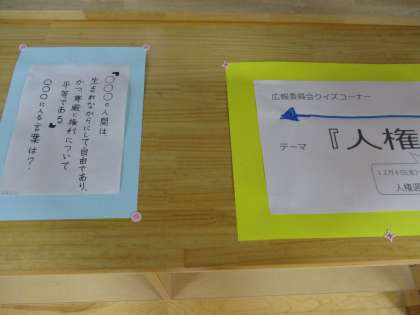 『○○○の人間は
生まれながらにして自由であり、
かつ尊厳と権利について
平等である』
○○○に入る言葉は？
広報委員会クイズコーナー
テーマ
『人権
12月4日(水)~
人権週